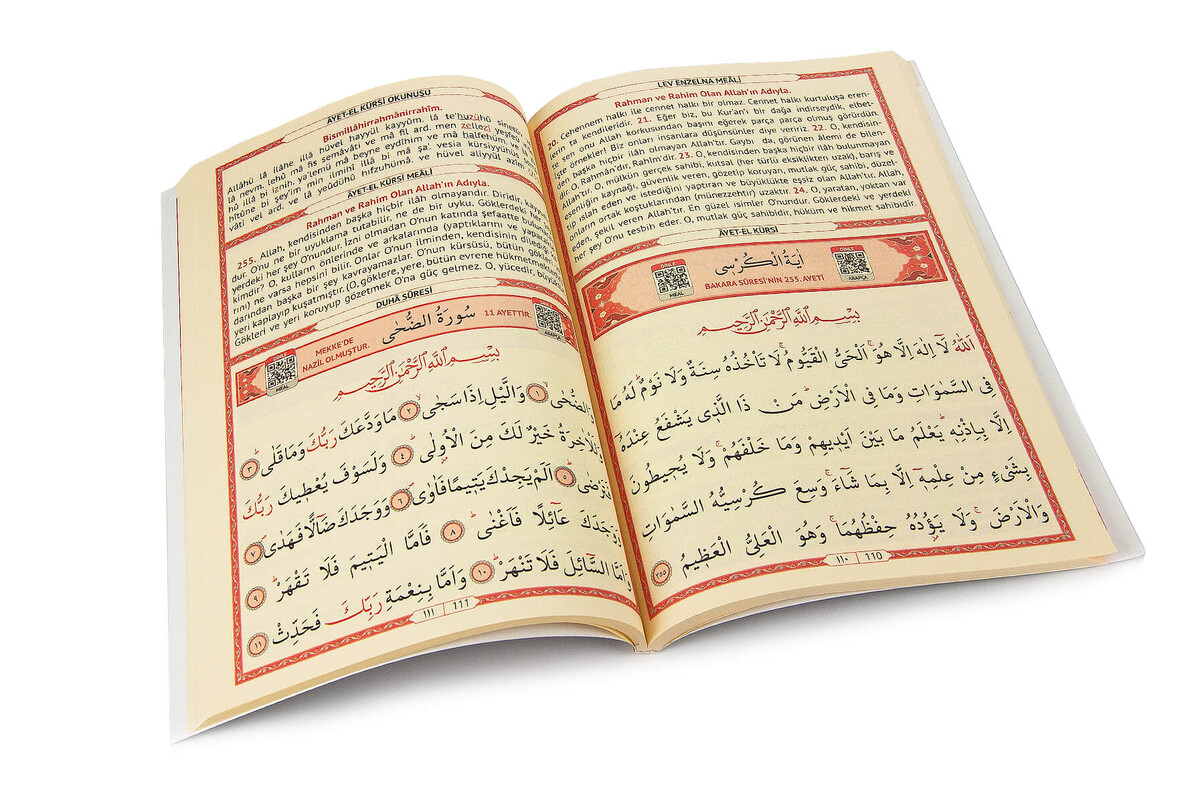 LEV ENZELNA MEÂLİ
Rahman ve Rahim Olan Allah'ın Adıyla.
20. Cehennem halkı ile cennet halkı bir olmaz. Cennet halkı kurtuluşa eren-
lerin ta kendileridir. 21. Eğer biz, bu Kur'an'ı bir dağa indirseydik, elbet-
te sen onu Allah korkusundan başını eğerek parça parça olmuş görürdün.
İşte örnekler! Biz onları insanlara düşünsünler diye veririz. 22. O, kendisin-
den başka hiçbir ilâh olmayan Allah'tır. Gaybı da, görünen âlemi de bilen-
dir. O, Rahmân'dır, Rahîm'dir. 23. O, kendisinden başka hiçbir ilâh bulunmayan
Allah'tır. O, mülkün gerçek sahibi, kutsal (her türlü eksiklikten uzak), barış ve
esenliğin kaynağı, güvenlik veren, gözetip koruyan, mutlak güç sahibi, düzel-
tip ıslah eden ve istediğini yaptıran ve büyüklükte eşsiz olan Allah'tır. Allah,
onların ortak koştuklarından (münezzehtir) uzaktır. 24. O, yaratan, yoktan var
eden, şekil veren Allah'tır. En güzel isimler O'nundur. Göklerdeki ve yerdeki
her şey O'nu tesbih eder. O, mutlak güç sahibidir, hüküm ve hikmet sahibidir.
ÂYET-EL KÜRSİ
DİNLE
MEAL
اٰيَةُ الْكُرْسِى
BAKARA SÛRESİ'NİN 255. AYETİ
DİNLE
ARAPÇA
بِسْمِ اللّٰهِ الرَّحْمٰنِ الرَّحِيمِ
اَللّٰهُ لَا اِلٰهَ اِلَّا هُوَۚ اَلْحَىُّ الْقَيُّومُۚ لَا تَأْخُذُهُ سِنَةٌ وَلَا نَوْمٌۜ لَهُ مَا
فِى السَّمٰوَاتِ وَمَا فِى الْاَرْضِۜ مَنْ ذَا الَّذٖى يَشْفَعُ عِنْدَهُٓ
اِلَّا بِاِذْنِهٖۜ يَعْلَمُ مَا بَيْنَ اَيْدٖيهِمْ وَمَا خَلْفَهُمْۚ وَلَا يُحٖيطُونَ
بِشَىْءٍ مِنْ عِلْمِهٖٓ اِلَّا بِمَا شَٓاءَۚ وَسِعَ كُرْسِيُّهُ السَّمٰوَاتِ
وَالْاَرْضَۚ وَلَا يَؤُدُهُ حِفْظُهُمَاۚ وَهُوَ الْعَلِىُّ الْعَظٖيمُ ﴿٢٥٥﴾
١١٠ 110
ÂYET-EL KÜRSİ OKUNUŞU
Bismillâhirrahmânirrahîm.
Allâhü lâ ilâhe illâ hüvel hayyül kayyûm. lâ te'huzühû sinetün
lâ nevm. lehû mâ fis semâvâti ve mâ fil ard. men zellezi yeşfeu
hû illâ bi iznih. ya'lemü mâ beyne eydîhim ve mâ halfehüm ve lâ
hîtûne bi şey'im min ilmihî illâ bi mâ şa'. vesia kürsiyyühü
vâti vel ard. ve lâ yeûdühû hıfzuhümâ ve hüvel aliyyül azîm.
ÂYET-EL KÜRSİ MEÂLİ
Rahman ve Rahim Olan Allah'ın Adıyla.
255. Allah, kendisinden başka hiçbir ilâh olmayandır. Diridir,
dur. O'nu ne bir uyuklama tutabilir, ne de bir uyku. Göklerdeki her
yerdeki her şey O'nundur. İzni olmadan O'nun katında şefaatte
kimdir? O, kulların önlerinde ve arkalarında (yaptıklarını ve
rını) ne varsa hepsini bilir. Onlar O'nun ilminden, kendisinin
darından başka bir şey kavrayamazlar. O'nun kürsüsü, bütün gökleri
yeri kaplayıp kuşatmıştır. (O, göklere, yere, bütün evrene hükmetmektedir.)
Gökleri ve yeri koruyup gözetmek O'na güç gelmez. O, yücedir,
DUHÂ SÛRESİ
DİNLE
MEAL
MEKKE'DE
NAZİL OLMUŞTUR.
سُورَةُ الضُّحٰى
11 AYETTİR.
ARAPÇA
بِسْمِ اللّٰهِ الرَّحْمٰنِ الرَّحِيمِ
وَالضُّحٰىۙ ﴿١﴾ وَالَّيْلِ اِذَا سَجٰىۙ ﴿٢﴾ مَا وَدَّعَكَ رَبُّكَ وَمَا قَلٰىۜ ﴿٣﴾
وَلَلْاٰخِرَةُ خَيْرٌ لَكَ مِنَ الْاُولٰىۜ ﴿٤﴾ وَلَسَوْفَ يُعْطٖيكَ رَبُّكَ
فَتَرْضٰىۜ ﴿٥﴾ اَلَمْ يَجِدْكَ يَتٖيمًا فَاٰوٰىۖ ﴿٦﴾ وَوَجَدَكَ ضَٓالًّا فَهَدٰىۖ ﴿٧﴾
وَوَجَدَكَ عَٓائِلًا فَاَغْنٰىۜ ﴿٨﴾ فَاَمَّا الْيَتٖيمَ فَلَا تَقْهَرْۜ ﴿٩﴾
وَاَمَّا السَّٓائِلَ فَلَا تَنْهَرْۜ ﴿١٠﴾ وَاَمَّا بِنِعْمَةِ رَبِّكَ فَحَدِّثْ ﴿١١﴾
١١١ 111